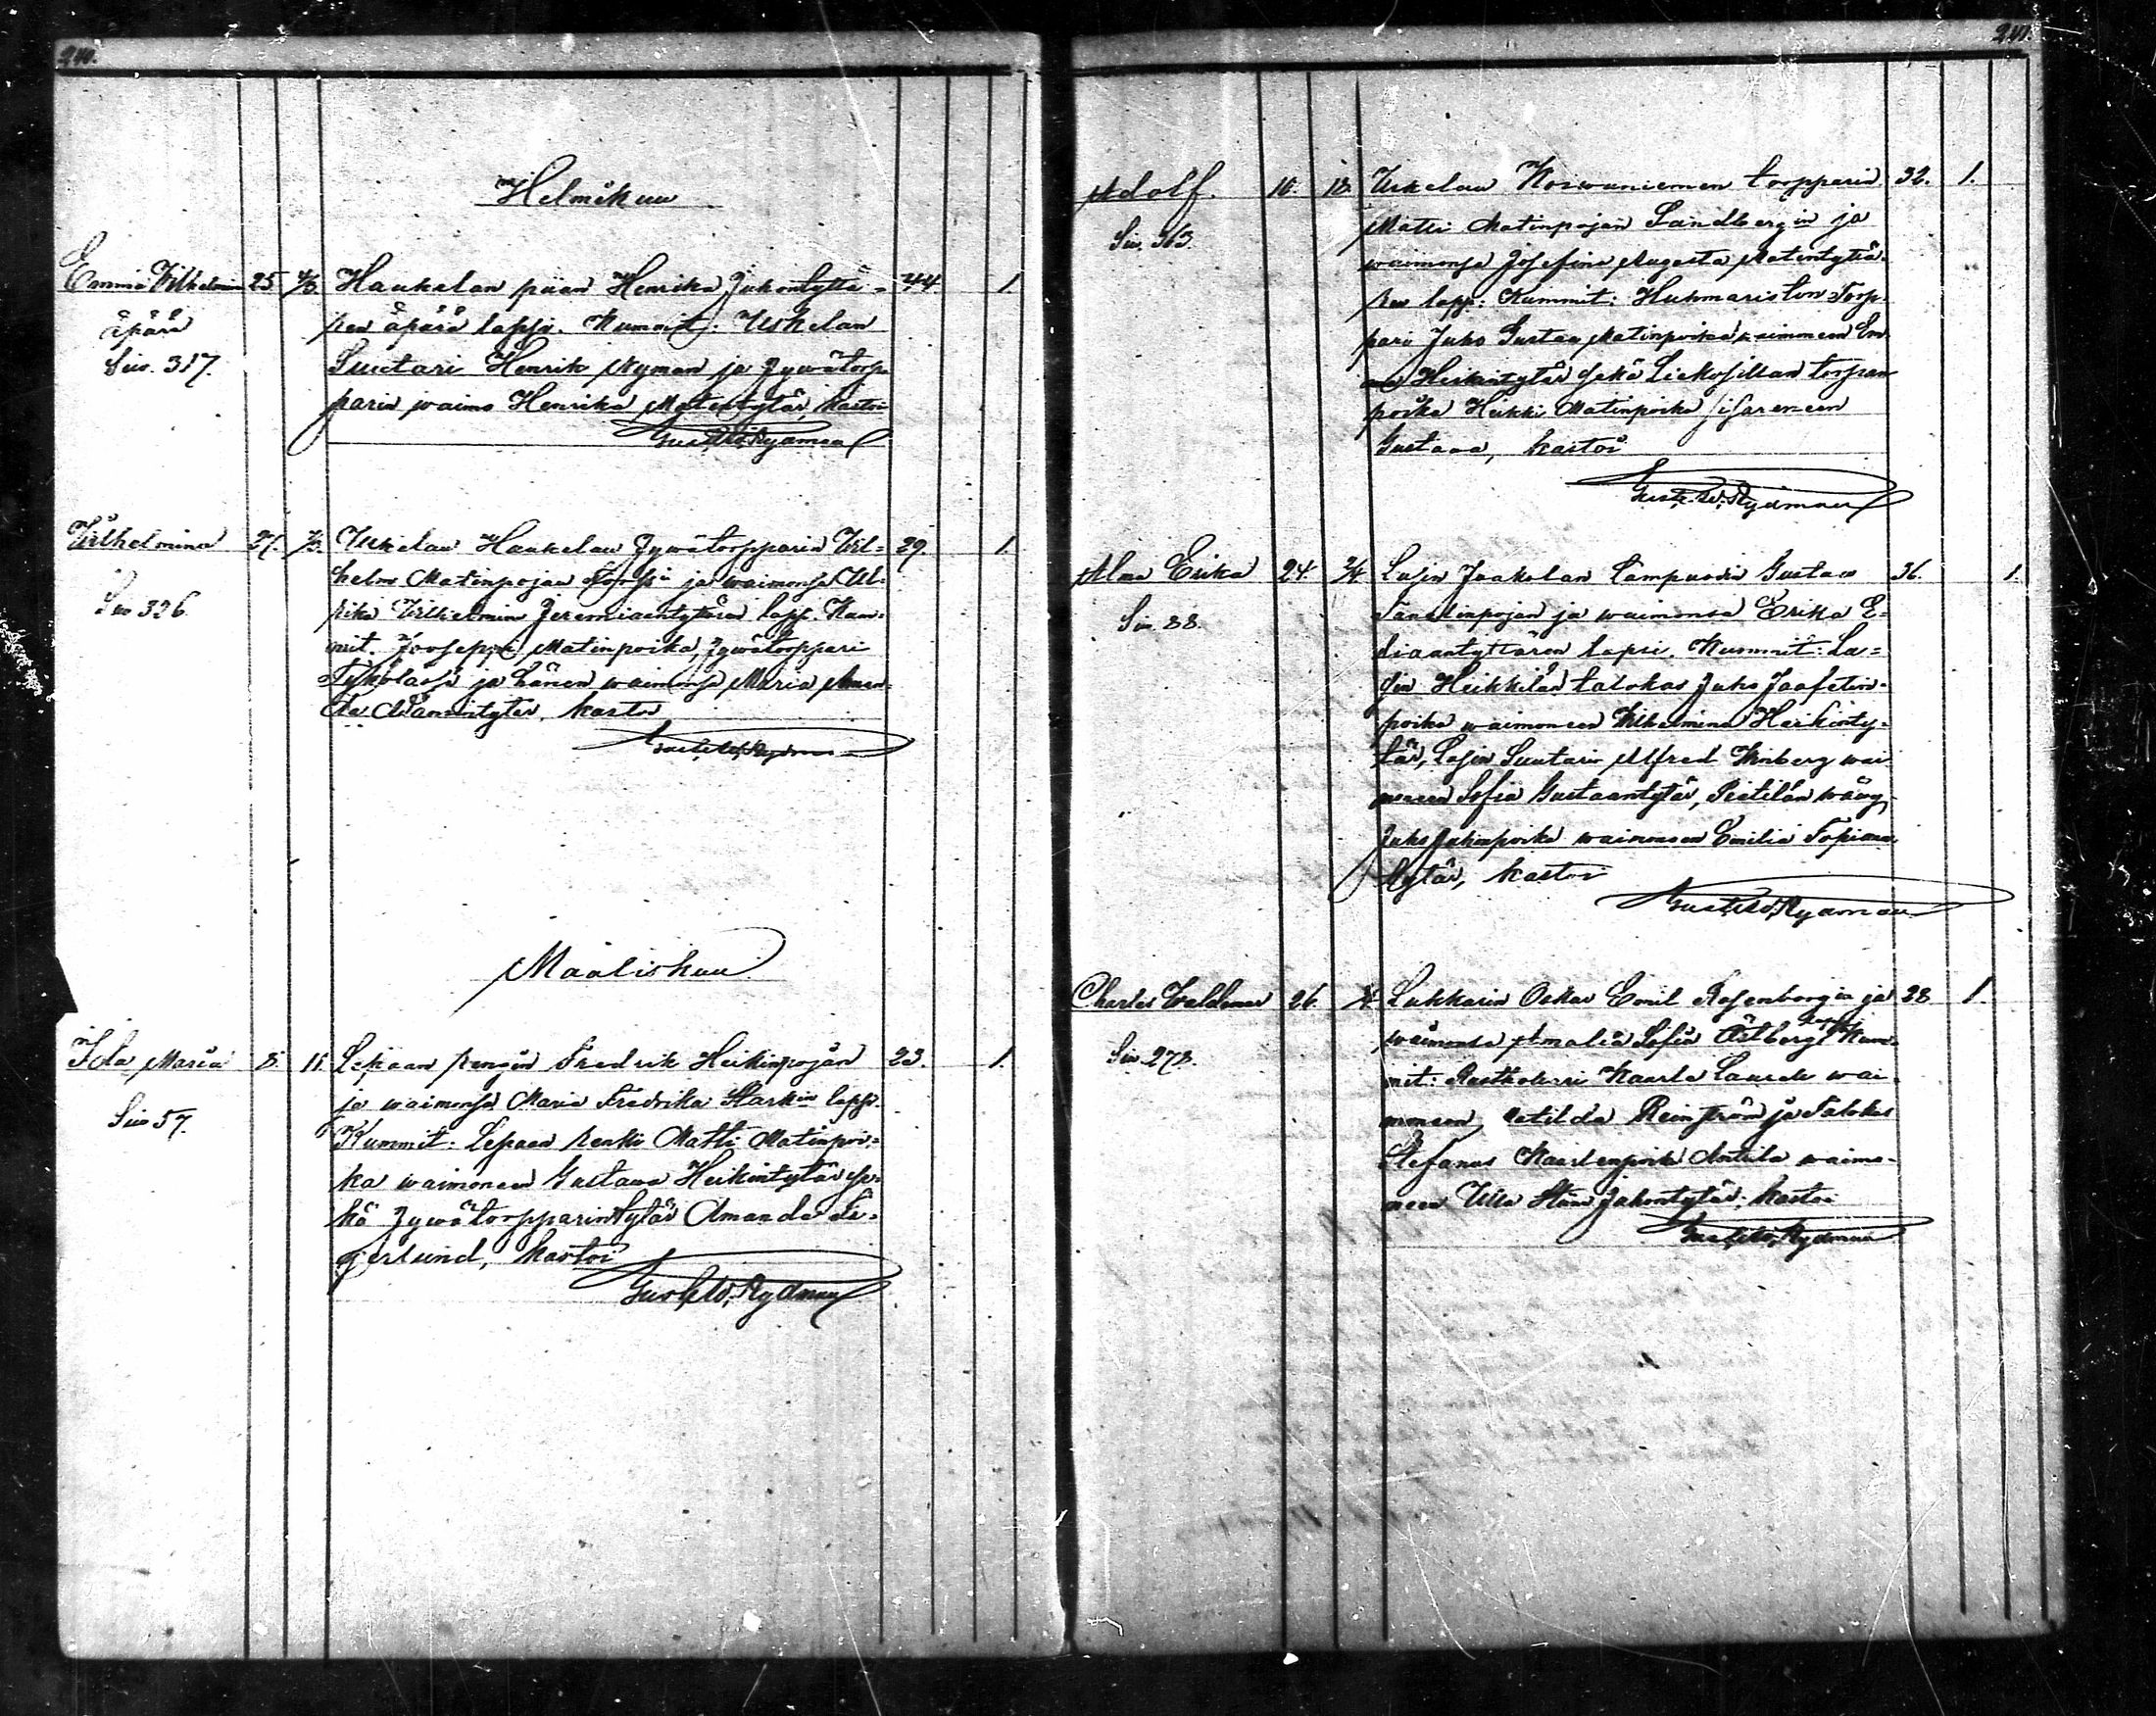 Helmikuu
Emma Wilhelmina 25. 4/3. Haukalan piian Henrika Juhontyttä= 44 1.
äpärä ren äpärä lapsi. Kummit: Uskelan
Siw. 317. Suutari Henrik Nyman ja Jywätorp
parin waimo Henrika Matintytär, kastoi
Gust. W. Rydman
Wilhelmina 27. /3. Uskelan Haukelan Jywätorpparin Wil= 29. 1.
Siw 326. helm Matinpojan ja waimonsa Ul=
rika Wilhelmina Jeremiaantyttären laps. Kum=
mit. Jooseppi Matinpoika, Jywätorppari
ja hänen waimonsa Maria Aman=
da Adamintytär, kastoi
Gust. W. Rydman
Maaliskuu
Ida Maria 8. 11. Lepaan rengin Fredrik Heikinpojan 23. 1.
Siw 57. ja waimonsa Maria Fredrika Starkin lapsi.
Kummit: Lepaan renki Matti Matinpoi=
ka waimoneen Gustava Heikintytär se=
kä Jywätorpparintytär Amanda Se=
gerlund, kastoi
Gust. W. Rydman
241.
Adolf. 10. 18. Uskelan Koiwuniemen torpparin 32. 1.
Siw. 363. Matti Matinpojan Sandbergin ja
waimonsa Josefina Augusta Matintyttä=
ren laps: Kummit: Huhmariston Torp=
pari Juho Gustaa Matinpoika waimoneen Em
ma Heikintytär sekä Liekosillan torpan
poika Heikki Matinpoika sisareneen
Gustava, kastoi
Gust. W. Rydman
Alma Erika 24. 2/4 Lusin Jaakolan Lampuodin Gustaa 36. 1.
Siw. 88. Taneliupojan ja waimonsa Erika E=
liaantyttären lapsi. Kummit: Lu=
sin Heikkilän talokas Juho Jaafetin=
poika waimoneen Wilhelmina Heikinty=
tär, Lusin Suutari Alfred wai
moneen Sofia Gustaantytär, wäwy
Juho Juhonpoika waimoneen Emilia Topiaan
tytär, kastoi
Gust. W. Rydman
Charles Waldemar 26. /4. Lukkarin Oskar Emil Rosenborgin ja 28 1.
Siw. 278. waimonsa Amalia Sofia Östbergi lapsi Kum=
mit: Rusthollari Kaarle Laurell wai=
moneen Matilda Reinström ja Talokas
Stefanus Kaarlenpoika waimo=
neen Ulla Stina Juhontytär; kastoi
Gust. W. Rydman